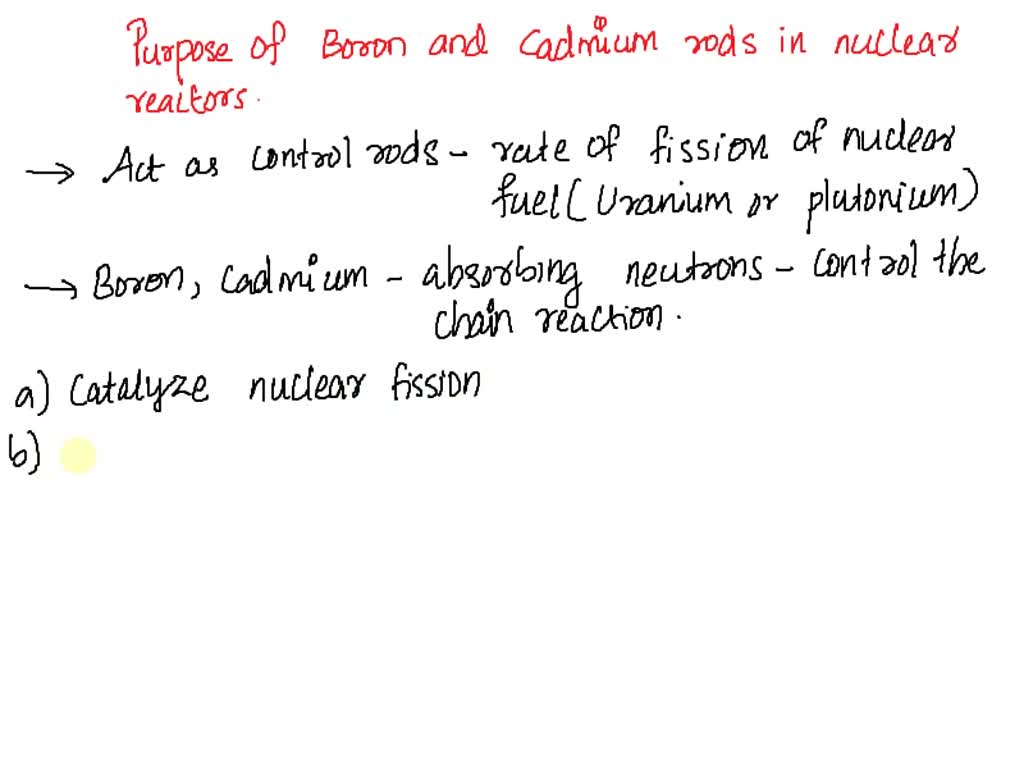 Purpose of Boron and Cadmium rods in nuclear
reactors.
→ Act as control rods - rate of fission of nuclear
fuel (Uranium or plutonium)
→ Boron, Cadmium - absorbing neutrons - control the
chain reaction.
a) Catalyze nuclear fission
b)